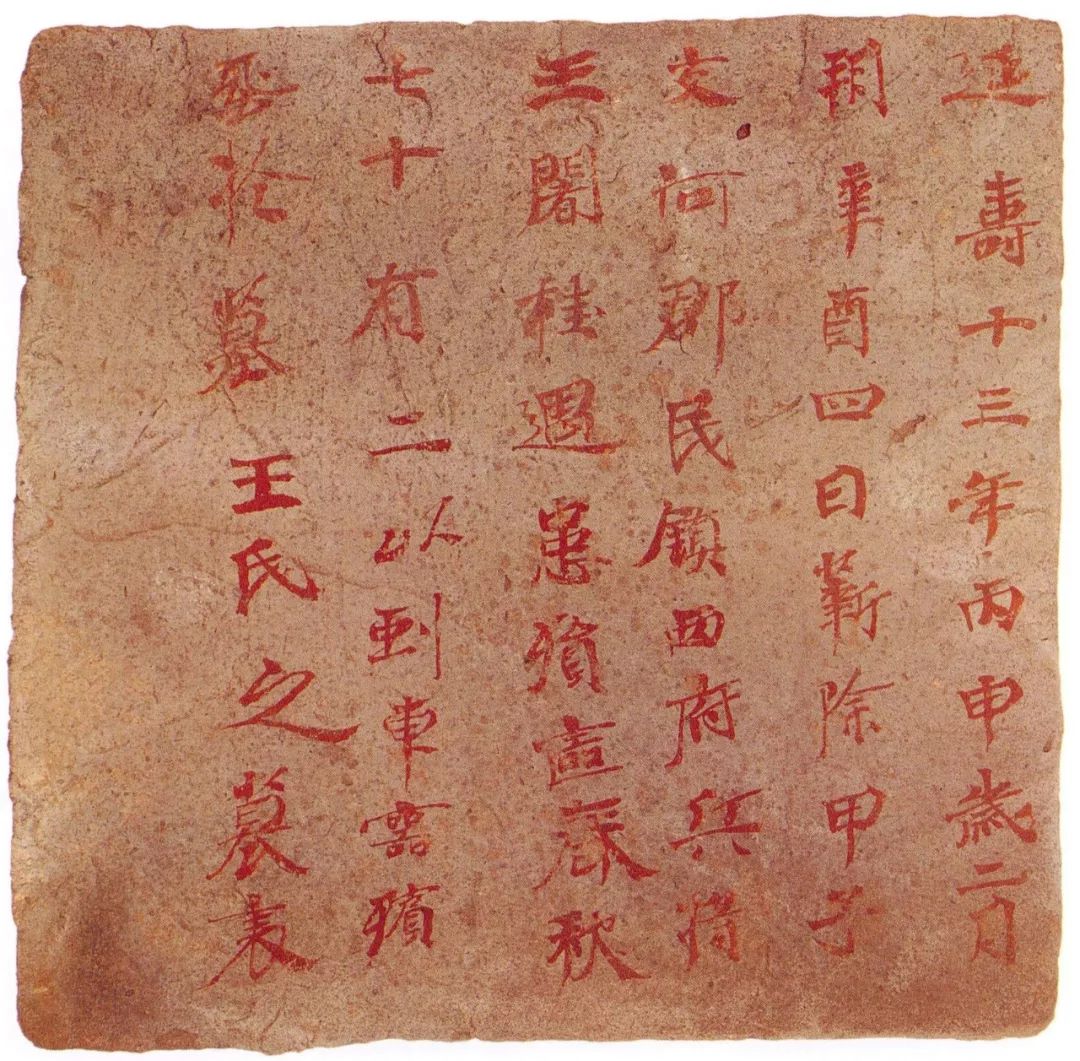 延壽十三年丙申歲二月
朔辛酉四日蕲除甲子
交河郡民鎮西府兵將
王闍桂遇患殞喪春秋
七十有二以到車靈殯
葬於墓王氏之墓表